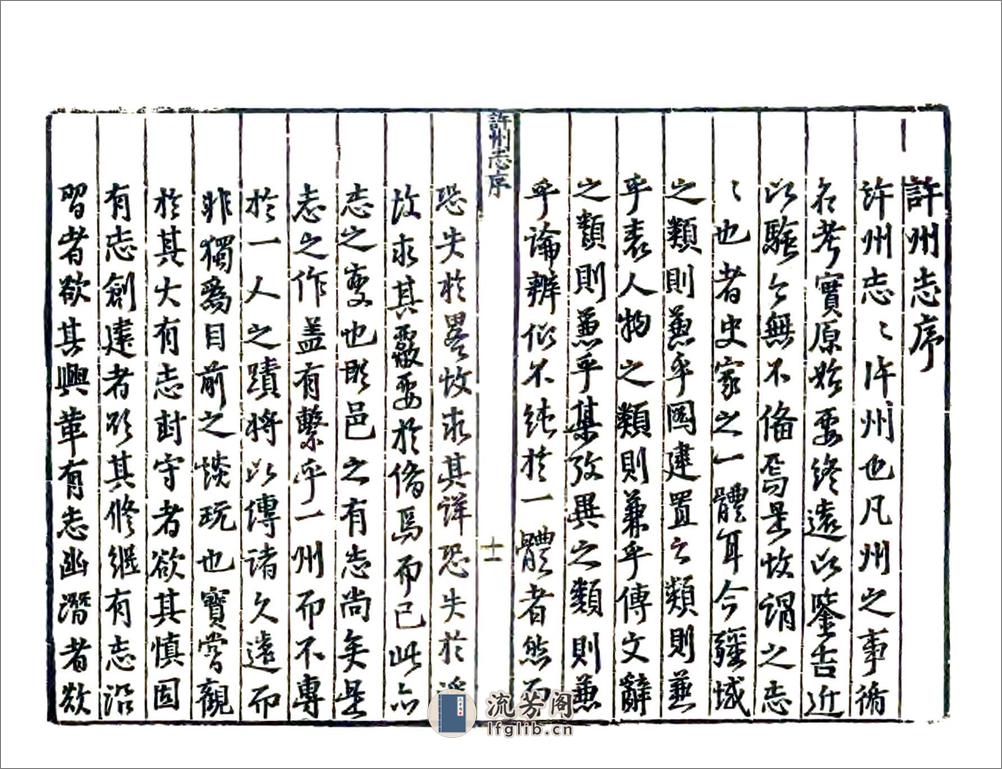 許州志序
許州志〻許州也凡州之事循
名考實原始要終遠以鑒古近
以驗今無不俻焉是故謂之志
〻也者史家之一體耳今疆域
之類則兼乎圖建置之類則兼
乎表人物之類則兼乎傳文辭
之類則兼乎集攷異之類則兼
乎論辨似不純於一體者然而
許州志序
十一
恐失於畧故求其詳恐失於
故求其覈要於俻焉而已此亦
志之變也郡邑之有志尚矣是
志之作盖有繫乎一州而不專
於一人之蹟將以傳諸久遠而
非獨為目前之玩也寶嘗觀
於其大有志封守者欲其慎固
有志創建者欲其修繼有志沿
習者欲其興革有志幽潛者欲
流芳阁
lfglib.cn